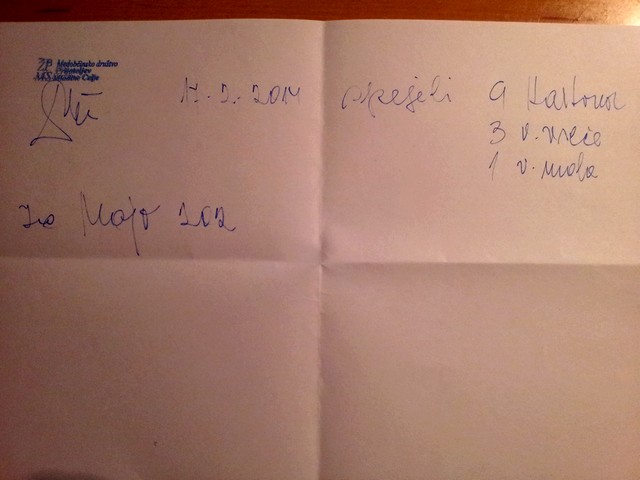 ZP Medobčinsko društvo
Prijateljev
MS Mladine Celje
17.2.2014 odpeljeli 9 kartonov
3 v. vreče
1 v. mala
Za Majo 202